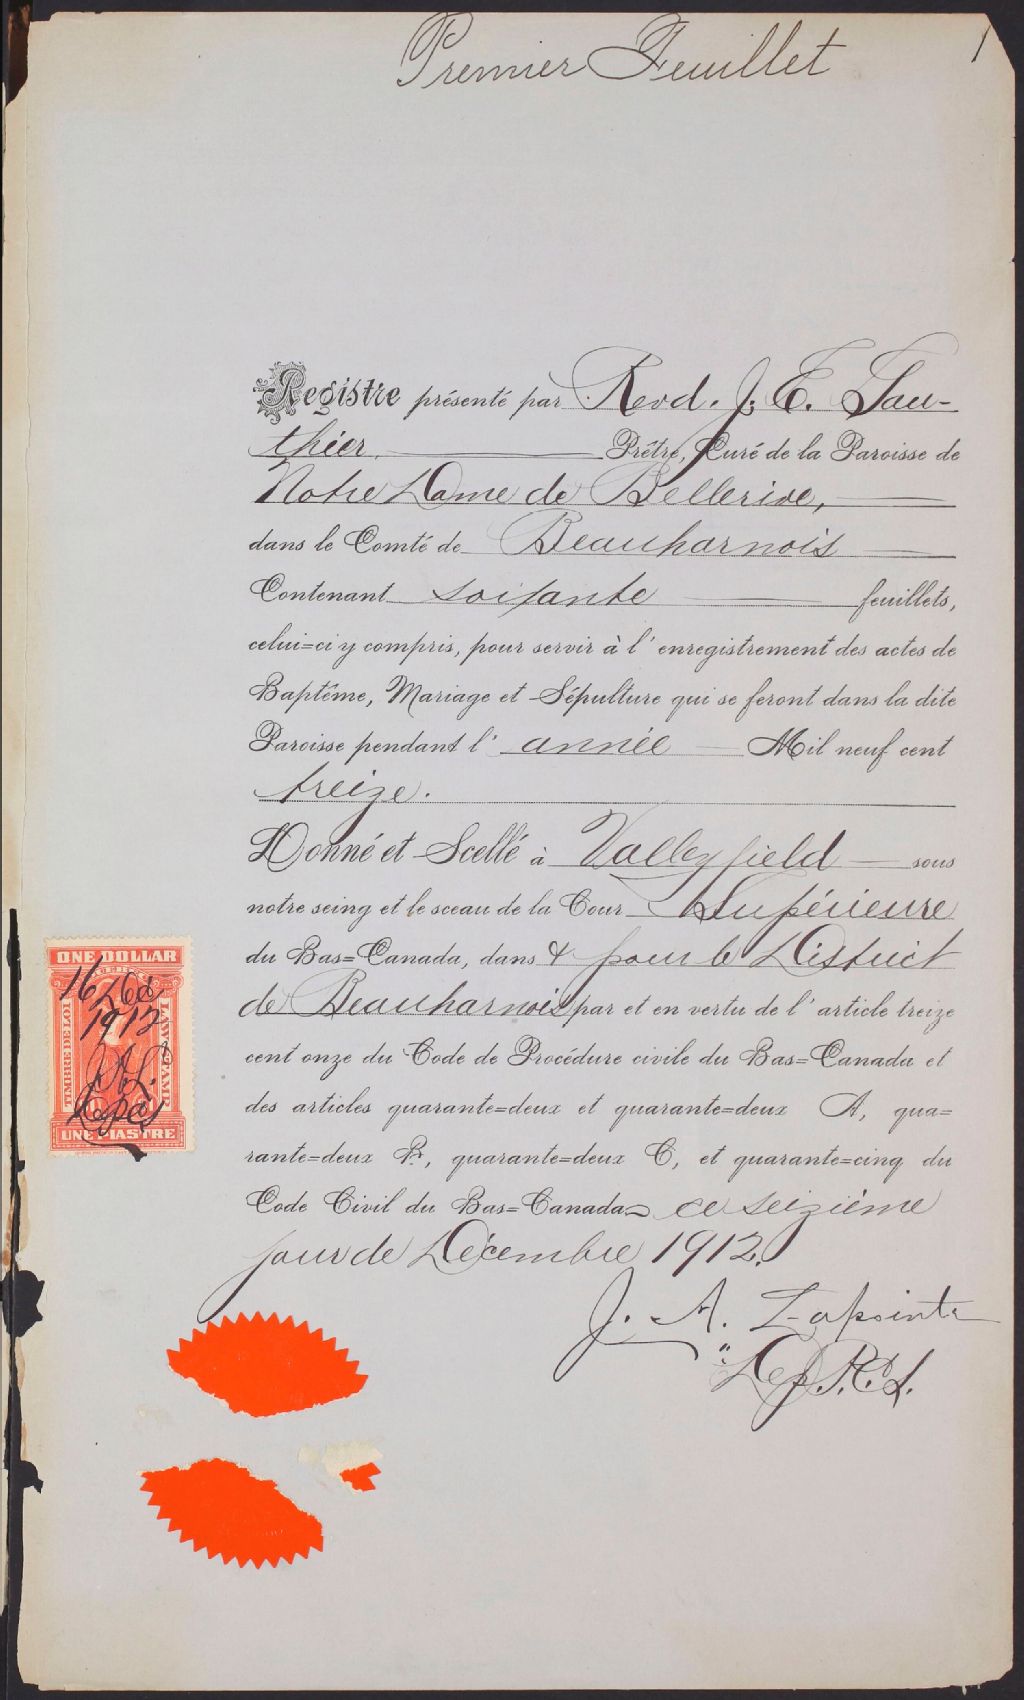 Premier Feuillet
1
Registre présenté par Revd. J. E. Gau-
thier Prêtre, Curé de la Paroisse de
Notre Dame de Bellerive,
dans le Comté de Beauharnois
Contenant soixante feuillets,
celui=ci y compris, pour servir à l'enregistrement des actes de
Baptême, Mariage et Sépulture qui se feront dans la dite
Paroisse pendant l'année Mil neuf cent
treize.
Donné et Scellé à Valleyfield sous
notre seing et le sceau de la Cour Supérieure
du Bas=Canada, dans & pour le District
de Beauharnois par et en vertu de l'article treize
cent onze du Code de Procédure civile du Bas=Canada et
des articles quarante=deux et quarante=deux A, qua=
rante=deux B, quarante=deux C, et quarante=cinq du
Code Civil du Bas=Canada ce seizième
jour de Décembre 1912.
J. A. Lapointe
Dep. P.C.S.
ONE DOLLAR
TIMBRE DE LOI
LAW STAMP
16 Dec
1912
J.A.L.
Dep PCS
UNE PIASTRE